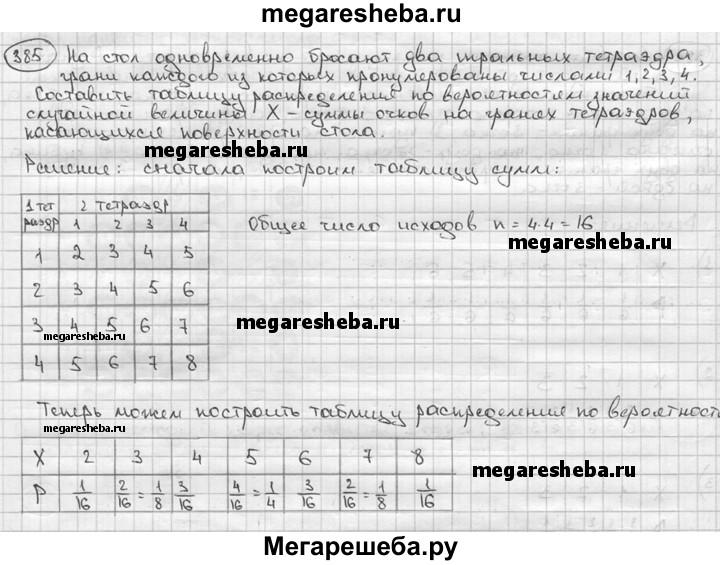 megaresheba.ru
385 На стол одновременно бросают два игральных тетраэдра,
грани каждого из которых пронумерованы числами 1, 2, 3, 4.
Составить таблицу распределения по вероятностям значений
случайной величины X – суммы очков на гранях тетраэдров,
касающихся поверхности стола.
megaresheba.ru
Решение: сначала построим таблицу сумм:
1 тет 2 тетраэдр
раэдр 1 2 3 4
1 2 3 4 5
2 3 4 5 6
3 4 5 6 7
4 5 6 7 8
Общее число исходов n = 4·4 = 16
megaresheba.ru
megaresheba.ru
megaresheba.ru
Теперь можем построить таблицу распределения по вероятност
megaresheba.ru
X 2 3 4 5 6 7 8
P 1/16 2/16 = 1/8 3/16 4/16 = 1/4 3/16 2/16 = 1/8 1/16
megaresheba.ru
Мегарешеба.ру